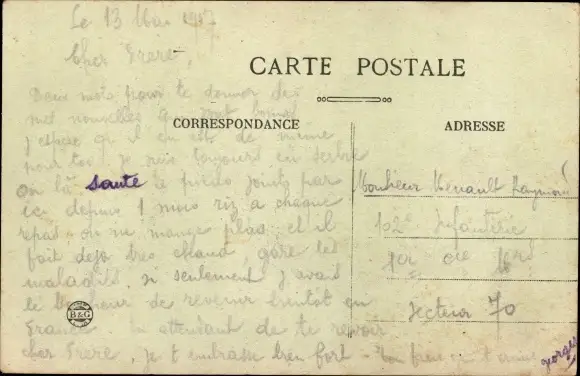 Le 13 Mai 1917
Cher Frere,
CARTE POSTALE
Deux mots pour te donner des
met nouvelles qui sont bonnes
CORRESPONDANCE
j'espere qu'il en est de meme
pour toi. Je suis toujours en Serbie
on la saute le pieds joints par
ici depuis 1 mois riz a chaque
repas on ne mange plus, et il
fait deja tres chaud, gare les
maladies, si seulement j avais
le bonheur de revenir bientot en
France. En attendant de te revoir
cher Frere, je t embrasse bien fort - Ton frere
georges
ADRESSE
Monsieur Renault Raymond
102e Infanterie
1er cie
Secteur 70
B&G